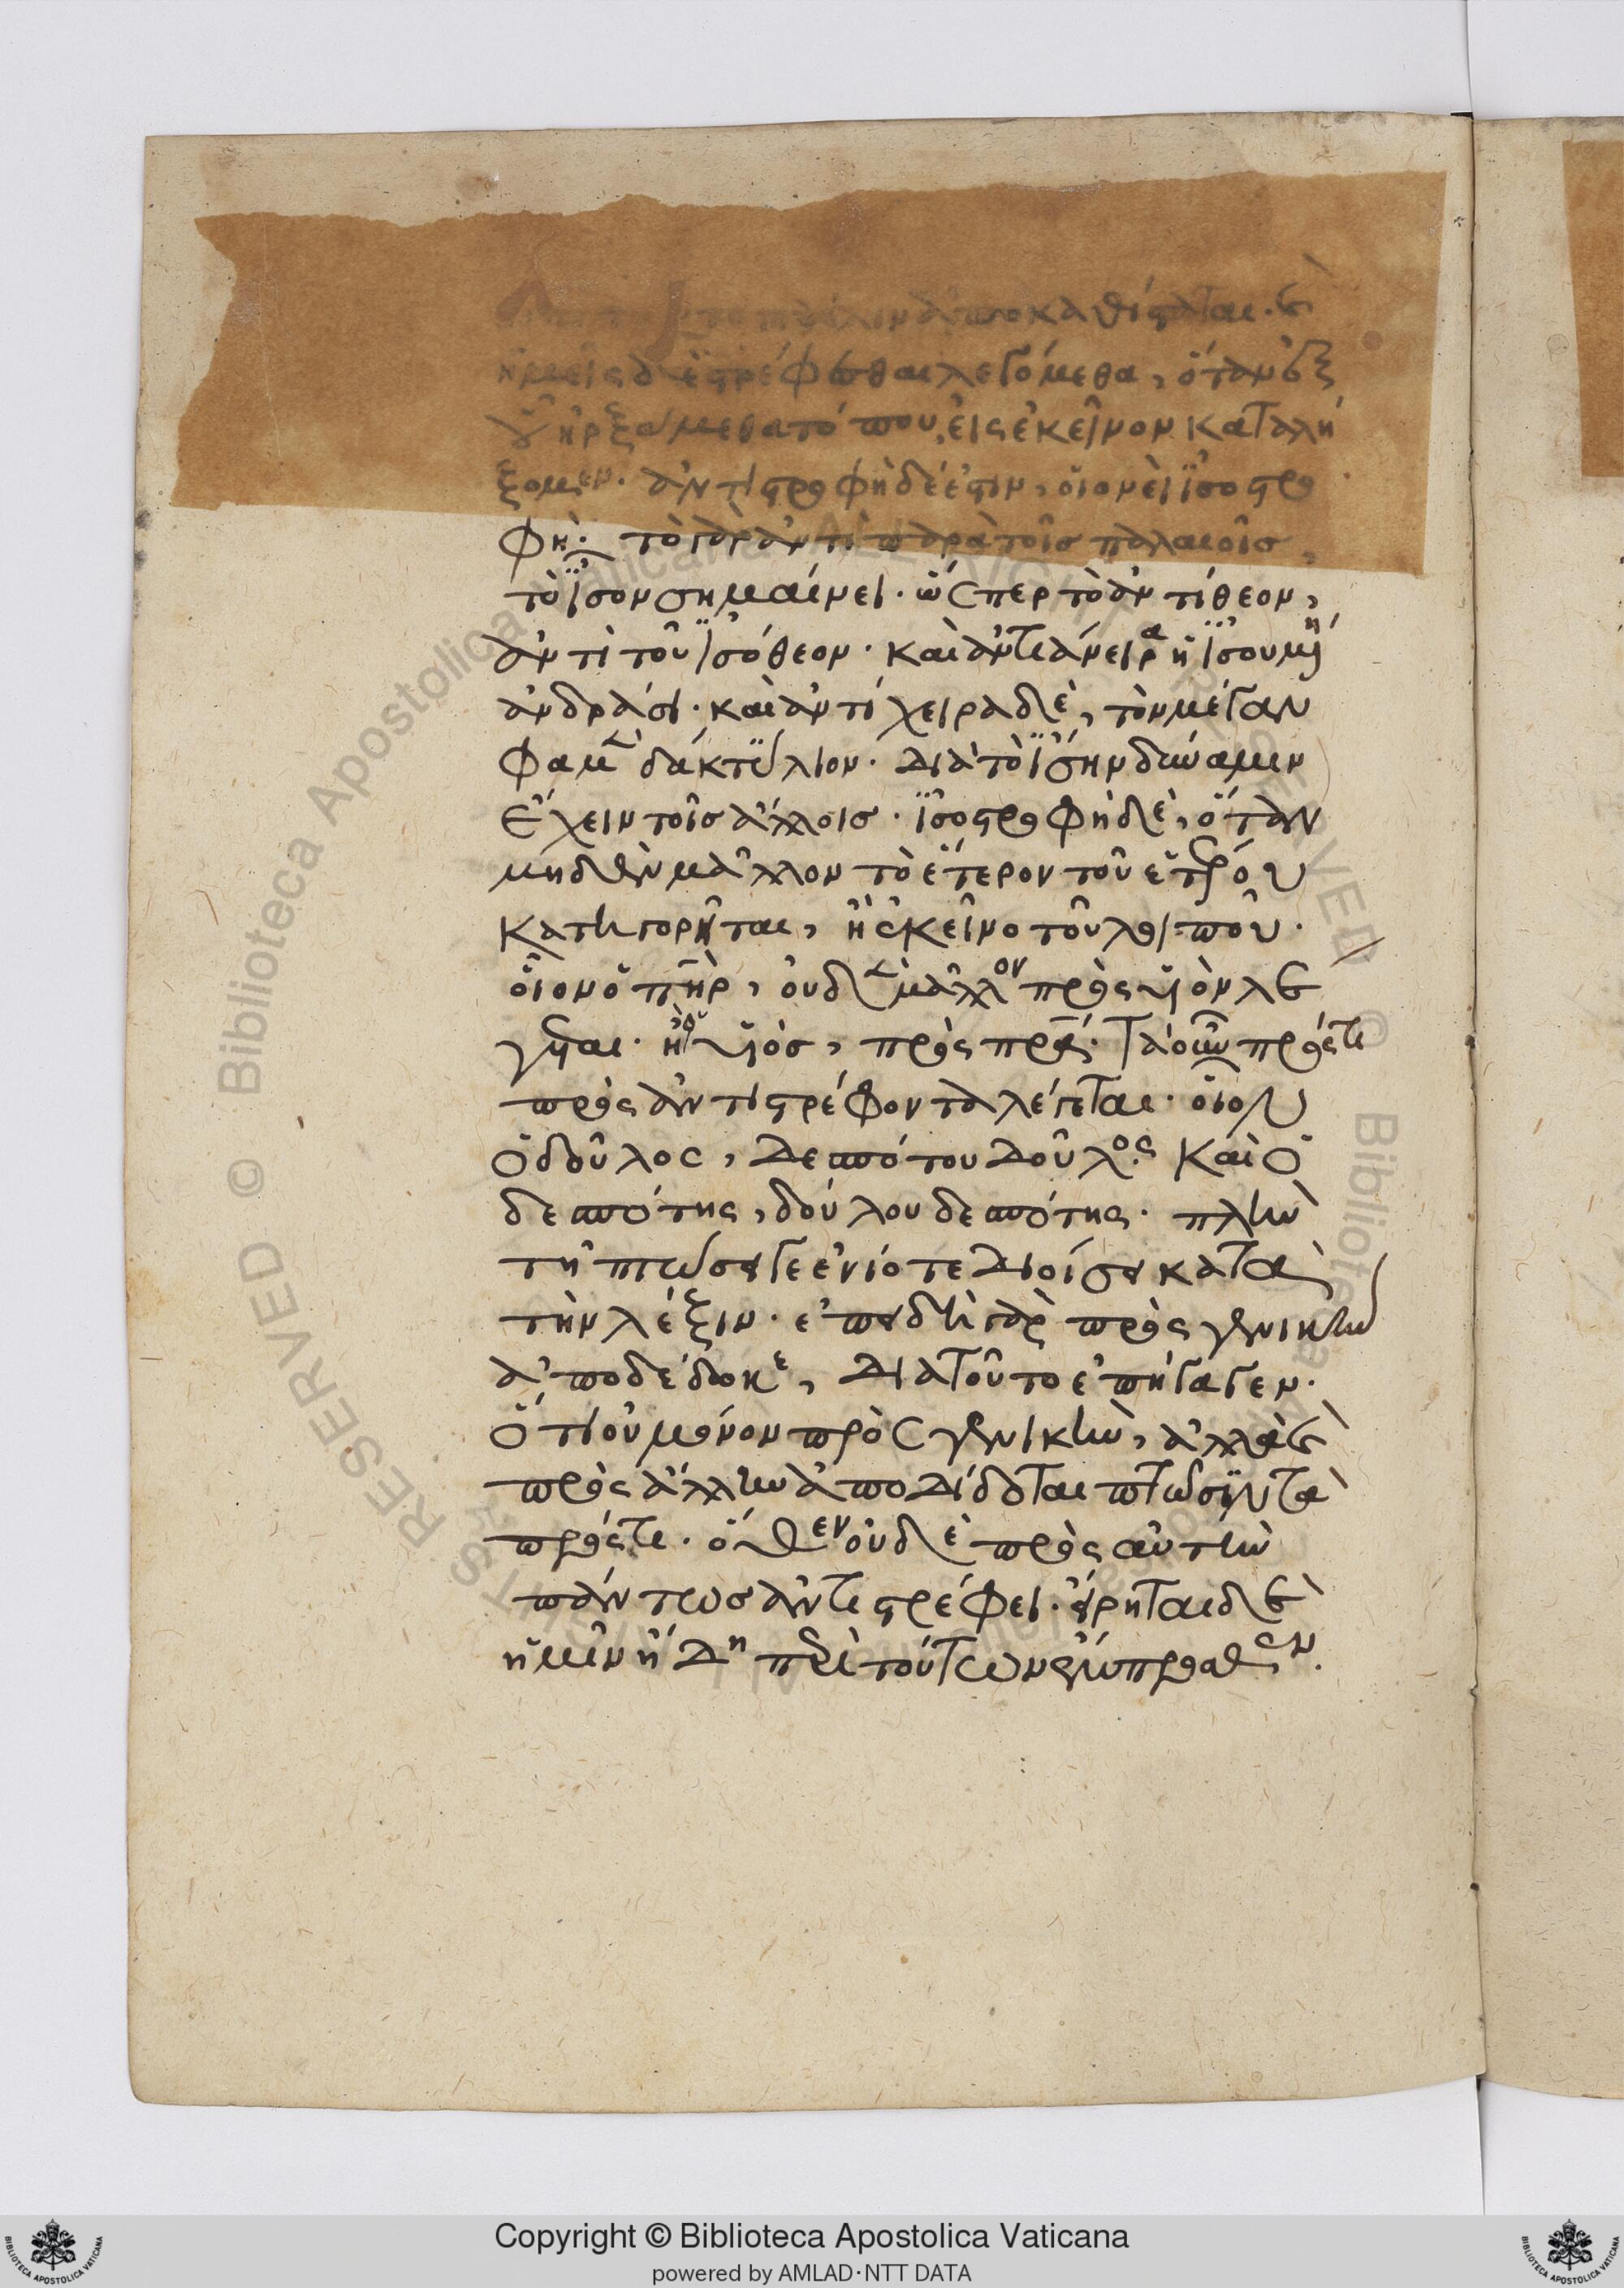 πάλιν ἀποκαθίσταται. καὶ
ἡμεῖς δὲ ἐστρέφθαι λεγόμεθα, ὅταν ἐξ
οὗ ἠρξάμεθα τόπου, εἰς ἐκεῖνον καταλή
ξομεν. ἀντιστροφὴ δέ ἐστιν, οἱονεὶ ἰσοστρο
φή. τὸ γὰρ ἀντὶ παρὰ τοῖς παλαιοῖς,
τὸ ἴσον σημαίνει. ὥσπερ τὸ ἀντίθεον,
ἀντὶ τοῦ ἰσόθεον. καὶ ἀντιάνειρα ἡ ἴσου μένη
ἀνδράσι. καὶ ἀντίχειρα δὲ, τὸν μέγαν
φαμὲν δάκτυλον. διὰ τὸ ἴσην δύναμιν
ἔχειν τοῖς ἄλλοις. ἰσοστροφὴ δὲ, ὅταν
μηδὲν μᾶλλον τὸ ἕτερον τοῦ ἑτέρου
κατηγορῆται, ἢ ἐκεῖνο τοῦ λοιποῦ.
οἷον ὁ πηρ, οὐδὲν μᾶλλον πρὸς υἱὸν λέ
γεται. ἢ ὁ υἱὸς, πρὸς πρα. τὰ οὖν πρός τι
πρὸς ἀντιστρέφοντα λέγεται. οἷον
ὁ δοῦλος, δεσπότου δοῦλος. καὶ ὁ
δεσπότης, δούλου δεσπότης. πλὴν
τῇ πτώσει γε ἐνίοτε διοίσει κατὰ
τὴν λέξιν. ἐπειδὴ γὰρ πρὸς γενικὴν
ἀποδέδωκε, διὰ τοῦτο ἐπήγαγεν.
ὅτι οὐ μόνον πρὸς γενικὴν, ἀλλὰ καὶ
πρὸς ἄλλην ἀποδίδοται πτῶσιν τὰ
πρός τι. ὅθεν οὐδὲ πρὸς αὐτὴν
πάντως ἀντιστρέφει. εἴρηται δὲ
ἡμῖν ἤδη περὶ τούτων ἔμπροσθεν.
Copyright © Biblioteca Apostolica Vaticana
powered by AMLAD·NTT DATA